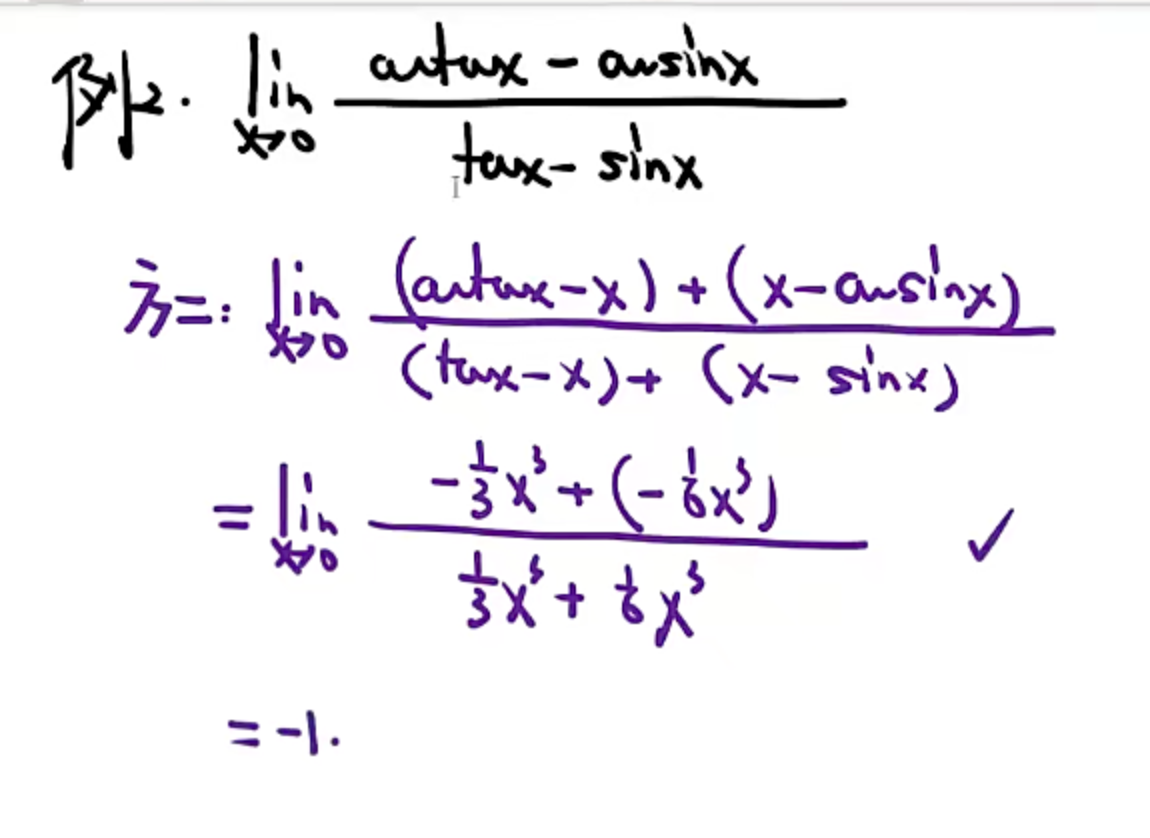 例2. lim x→0 (arctanx - arcsinx)/(tanx - sinx)
方二: lim x→0 ((arctanx - x) + (x - arcsinx))/((tanx - x) + (x - sinx))
= lim x→0 (-1/3 x³ + (-1/6 x³))/(1/3 x³ + 1/6 x³) ✓
= -1.